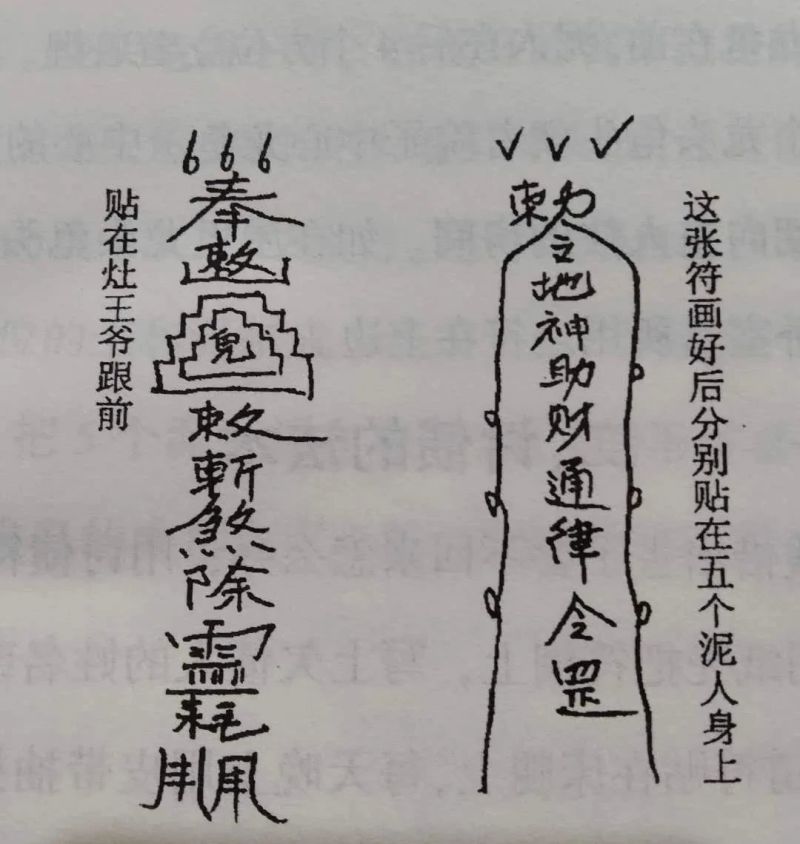 这张符画好后分别贴在五个泥人身上
勅令地神助财通律令罡
奉敕
敕斬煞除
耗
贴在灶王爷跟前